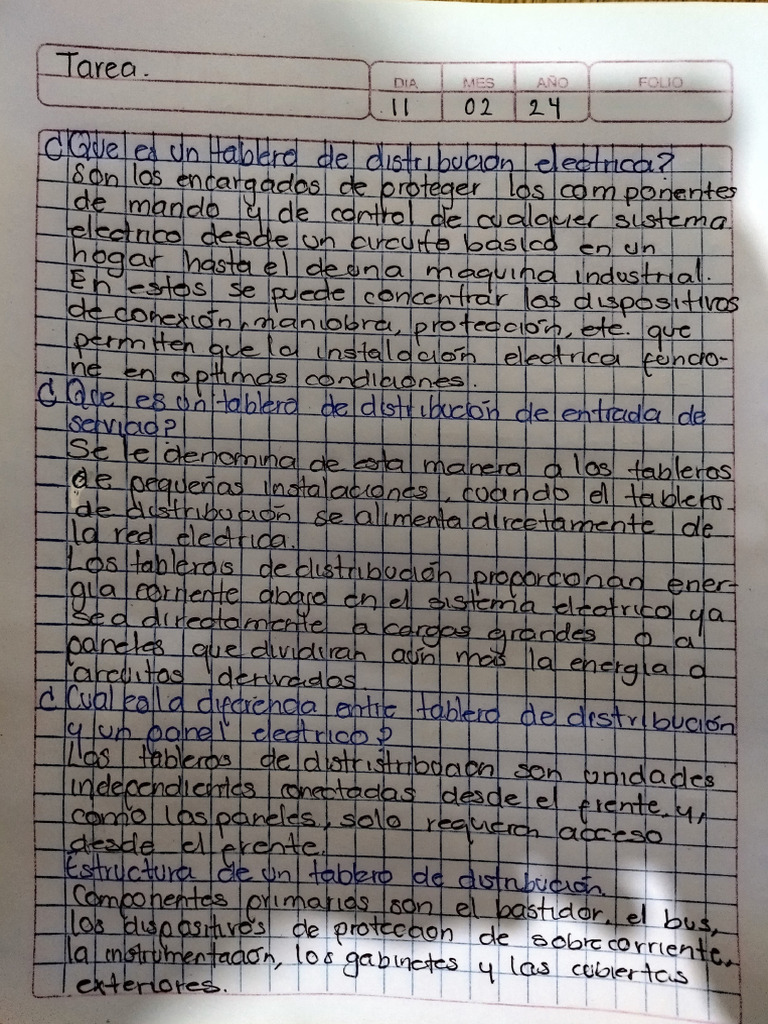 Tarea.
DIA MES AÑO FOLIO
11 02 24
¿Que es un tablero de distribución electrica?
Son los encargados de proteger los componentes
de mando y de control de cualquier sistema
electrico desde un circuito basico en un
hogar hasta el de una maquina industrial.
En estos se puede concentrar los dispositivos
de conexión, maniobra, protección, etc. que
permiten que la instalación electrica funcio-
ne en optimas condiciones.
¿Que es un tablero de distribución de entrada de
servicio?
Se le denomina de esta manera a los tableros
de pequeñas instalaciones, cuando el tablero
de distribución se alimenta directamente de
la red electrica.
Los tableros de distribución proporcionan ener-
gia corriente abajo en el sistema electrico ya
sea directamente a cargas grandes o a
paneles que dividiran aún mas la energia a
circuitos derivados.
¿Cual es la diferencia entre tablero de distribución
y un panel electrico?
Los tableros de distristribución son unidades
independientes conectadas desde el frente, y,
como los paneles, solo requieren acceso
desde el frente.
Estructura de un tablero de distribución.
Componentes primarios son el bastidor, el bus,
los dispositivos de protección de sobrecorriente,
la instrumentación, los gabinetes y las cubiertas
exteriores.